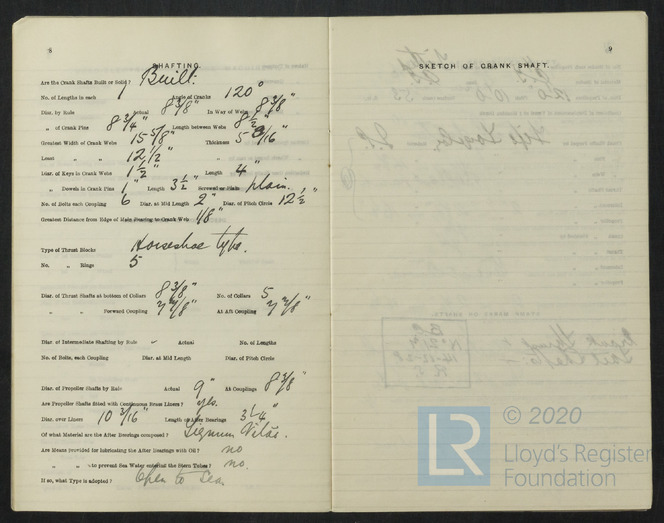 8
SHAFTING.
Are the Crank Shafts Built or Solid? Built
No. of Lengths in each 1 Angle of Cranks 120°
Diar. by Rule Actual 8 3/8" In Way of Webs 8 3/8"
" of Crank Pins 8 3/4" Length between Webs 8 1/2"
Greatest Width of Crank Webs 15 5/8" Thickness 5 3/16"
Least " " " 12 1/2"
Diar. of Keys in Crank Webs 1 1/2" Length 4"
" Dowels in Crank Pins 1" Length 3 1/2" Screwed or Plain plain.
No. of Bolts each Coupling 6 Diar. at Mid Length 2" Diar. of Pitch Circle 12 1/2"
Greatest Distance from Edge of Main Bearing to Crank Web 1/8"
Type of Thrust Blocks Horseshoe type.
No. " Rings 5
Diar. of Thrust Shafts at bottom of Collars 8 3/8" No. of Collars 5
" " Forward Coupling 7 7/8" At Aft Coupling 7 7/8"
Diar. of Intermediate Shafting by Rule Actual No. of Lengths
No. of Bolts, each Coupling Diar. at Mid Length Diar. of Pitch Circle
Diar. of Propeller Shafts by Rule Actual 9" At Couplings 8 3/8"
Are Propeller Shafts fitted with Continuous Brass Liners? yes.
Diar. over Liners 10 3/16" Length of After Bearings
Of what Material are the After Bearings composed? Lignum Vitae.
Are Means Provided for lubricating the After Bearings with Oil? no
" " to prevent Sea Water entering the Stern Tubes? no.
If so, what Type is adopted? Open to Sea
9
SKETCH OF CRANK SHAFT.
LR
© 2020
Lloyd's Register
Foundation